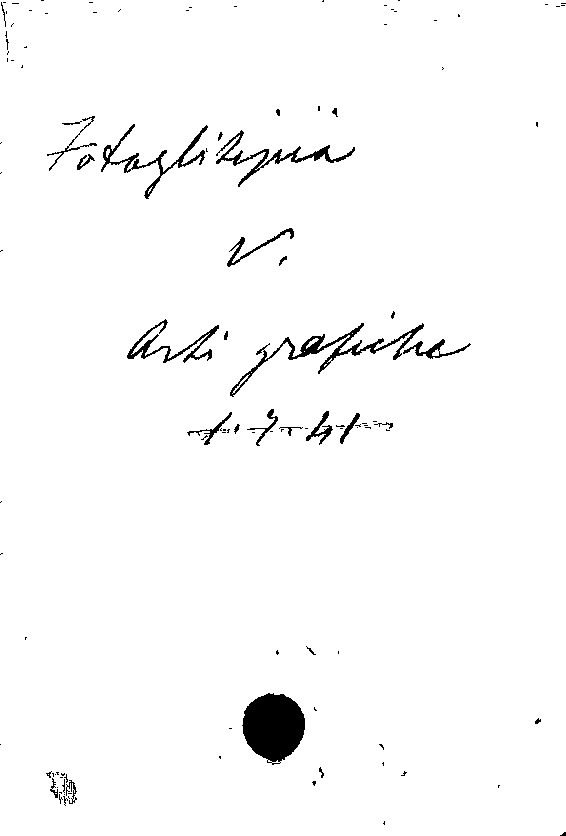 Fotoglitipia
V.
Arti grafiche
1.7.41